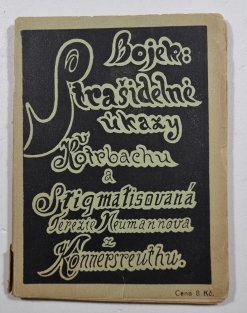 Bojek:
Strašidelné
úkazy
v Kirbachu
a
Stigmatisovaná
Terezie Neumannova
z
Konnersreuthu.
Cena 8 Kč.